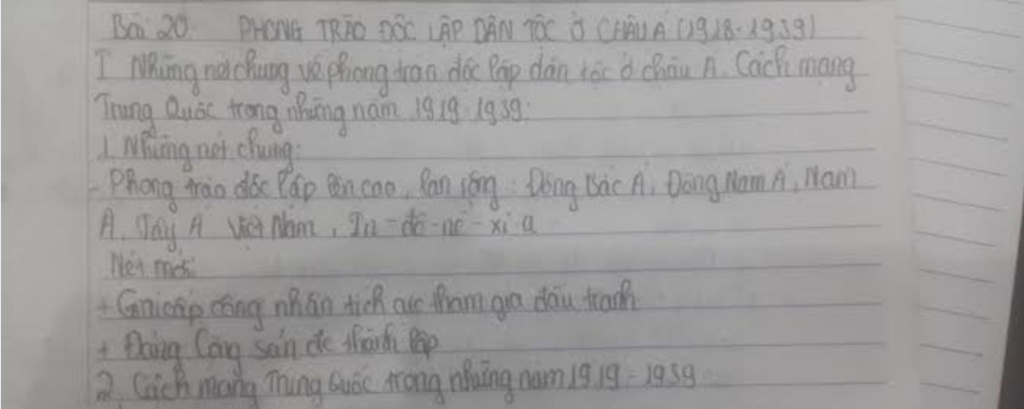 Bài 20. PHONG TRÀO ĐỘC LẬP DÂN TỘC Ở CHÂU Á (1918-1939)
I Những nét chung về phong trào độc lập dân tộc ở châu Á. Cách mạng
Trung Quốc trong những năm 1919-1939:
1. Những nét chung:
- Phong trào độc lập lên cao, lan rộng: Đông Bắc Á, Đông Nam Á, Nam
Á, Tây Á Việt Nam, In-đô-nê-xi a
Nét mới:
+ Giai cấp công nhân tích cực tham gia đấu tranh
+ Đảng Cộng sản đc thành lập
2. Cách mạng Trung Quốc trong những năm 1919-1939